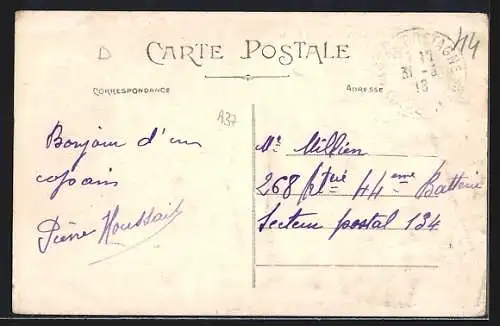 D
CARTE POSTALE
114
CORRESPONDANCE
ADRESSE
31 - 3
A37
Bonjour d'un
copain
Pierre Houssais
Mr Millien
268 Btrie 44eme Batterie
Secteur postal 134